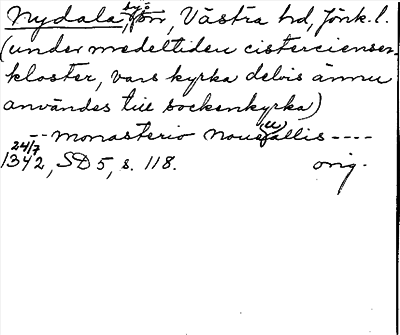 Nydala, sn, Västra hd, Jönk. l.
(under medeltiden cistercienser-
kloster, vars kyrka delvis ännu
användes till sockenkyrka)
-- monasterio Noueuallis ----
24/7
1342, SD 5, s. 118. orig.